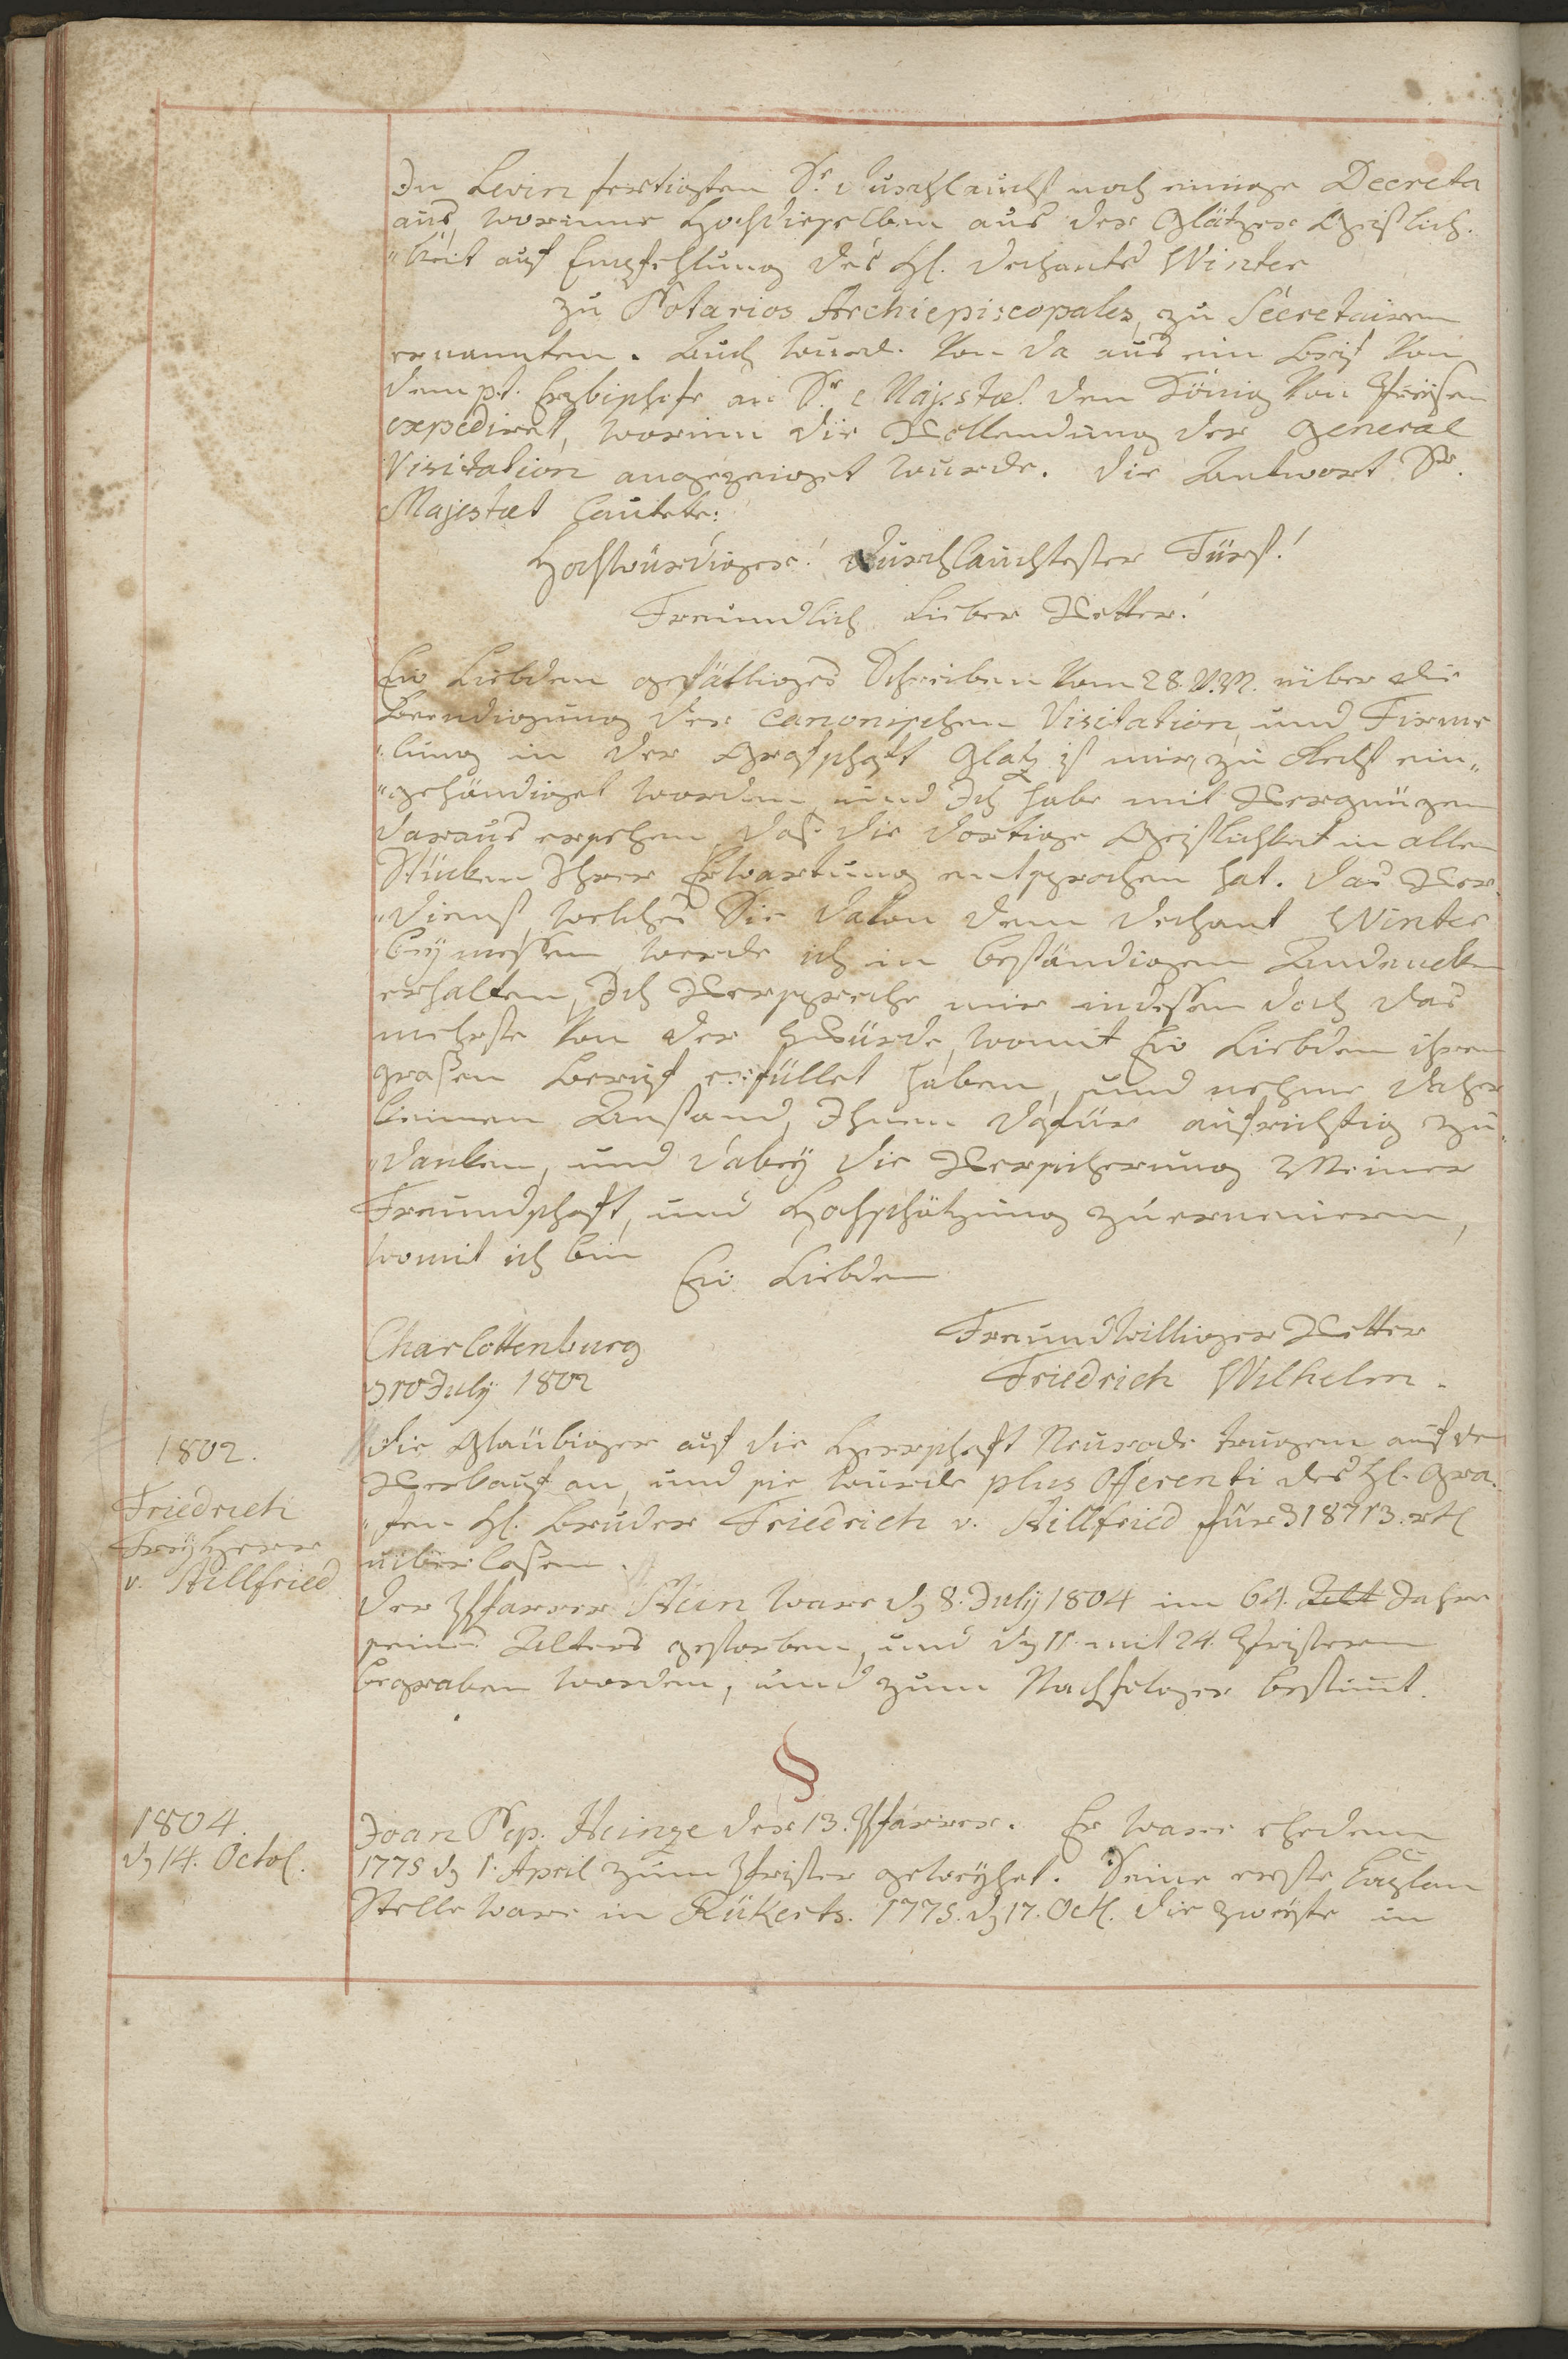 In Levin fertigten Sr. Durchlaucht noch einige Decreta
aus, worinne Hochdieselben aus der Glätzer Geistlich-
"keit auf Empfehlung des H. Dechants Winter
zu Notarios Archiepiscopales, zu Secretairen
ernannten. Auch wurd. von da aus ein Brief von
dem p.t. Erzbischofe an Sr. Majestæt den König von Preüsen
expediret, worinn die Vollendung der General
Visitation angezeiget wurde. Die Antwort Sr.
Majestæt lautette:
Hochwürdiger! Durchlauchtester Fürst!
Freundlich Lieber Vetter!
Ew Liebden gefälliges Schreiben vom 28. v. M. über die
Beendigung der canonischen Visitation und Firme
"lung in der Grafschaft Glatz ist mir zu Recht ein"
"gehändiget worden, und Ich habe mit Vergnügen
daraus ersehen, daß die dortige Geistlichkeit in allen
Stücken Ihrer Erwartung entsprochen hat. Das Ver-
"dienst, welches Sie davon dem Dechant Winter
beymessen, werde ich in beständigem Andencken
erhalten, Ich verspreche mir indessen doch das
mehrste von der Würde, womit Ew Liebden ihren
großen Beruf erfüllet haben, und nehme daher
keinen Anstand, Ihnen dafür aufrichtig zu"
"danken, und dabey die Versicherung Meiner
Freundschaft, und Hochschätzung zu erneuern,
womit ich bin
Ew Liebden
Freundwilliger Vetter
Charlottenburg
Friedrich Wilhelm.
July 1802
1802.
Friedrich
Freyherr
v. Stillfried
Die Glaübiger auf die Herrschaft Neurode trugen auf den
Verkauf an, und sie wurde plus offerenti des H. Gra-
"fen H. Bruder Friedrich v. Stillfried für 318713. rtl
überlaßen.
Der Pfarrer ware d 8. July 1804 im 64. Alt Jahre
seines Alters gestorben, und d 11. mit 24. Pristern
begraben worden, und zum Nachfolger bestimt.
§
1804.
d 14. Octob.
Joan Nep. Heinze der 13. Pfarrer. Er ware ehedem
1775 d 1. April zum Prister geweyhet. Seine erste Caplan
Stelle ware in Rükerts. 1775. d 17. Oct. die zweyte in